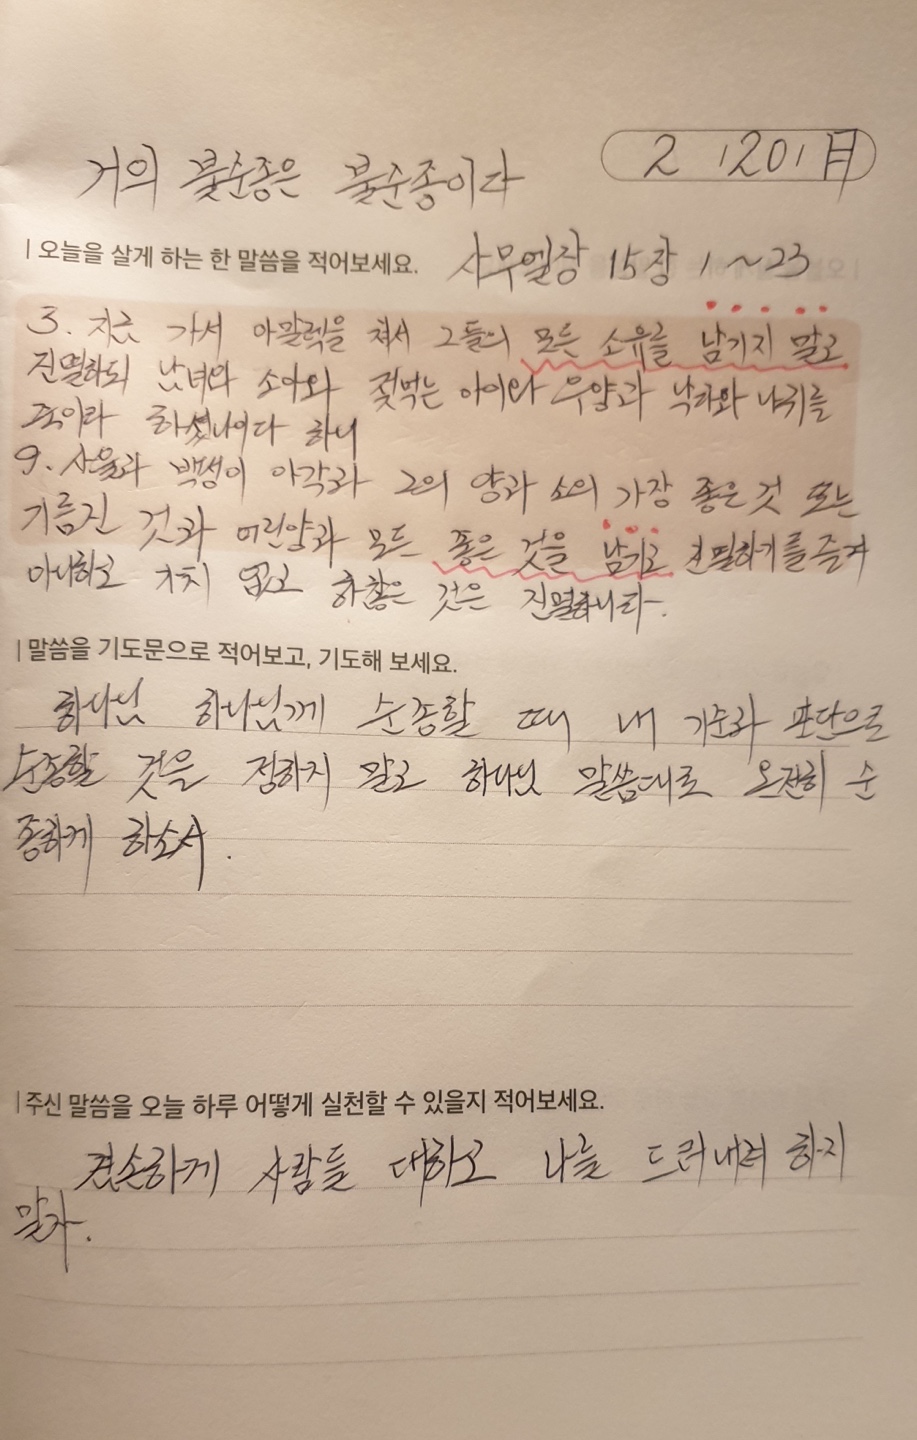 거의 불순종은 불순종이다
2 /20/ 日
| 오늘을 살게 하는 한 말씀을 적어보세요. 사무엘장 15장 1~23
3. 지금 가서 아말렉을 쳐서 그들의 모든 소유를 남기지 말고
진멸하되 남녀와 소아와 젖먹는 아이와 우양과 낙타와 나귀를
죽이라 하셨나이다 하니
9. 사울과 백성이 아각과 그의 양과 소의 가장 좋은 것 또는
기름진 것과 어린양과 모든 좋은 것을 남기고 진멸하기를 즐겨
아니하고 가치 없고 하찮은 것은 진멸하니라.
| 말씀을 기도문으로 적어보고, 기도해 보세요.
하나님 하나님께 순종할 때 내 기준과 판단으로
순종할 것을 정하지 말고 하나님 말씀대로 온전히 순
종하게 하소서.
| 주신 말씀을 오늘 하루 어떻게 실천할 수 있을지 적어보세요.
겸손하게 사람들 대하고 나를 드러내려 하지
말자.